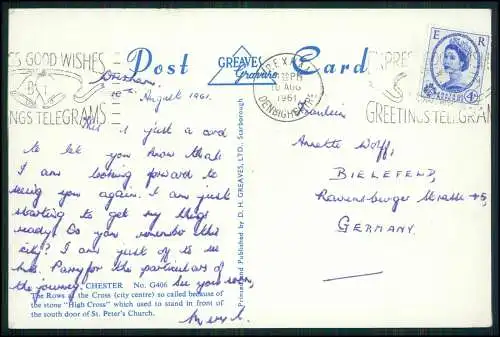 Post Card
GREAVES
Graphics
S GOOD WISHES
NGS TELEGRAMS
PM
10 AUG
1961
DENBIGHSHIRE
EXPRES
GREETINGS TELEGRAM
E R
10th August 1961.
This is just a card
to let you know that
I am looking forward to
seeing you again. I am just
starting to get my things
ready. Do you remember this
city? I am just off to see
Mrs. Parry for the particulars of
the journey. See you soon,
CHESTER No. G406
The Rows at the Cross (city centre) so called because of
the stone "High Cross" which used to stand in front of
the south door of St. Peter's Church.
Printed and Published by D. H. GREAVES, LTD., Scarborough
Fräulein
Annette Wolff,
BIELEFELD,
Ravensberger Strasse 45,
GERMANY.